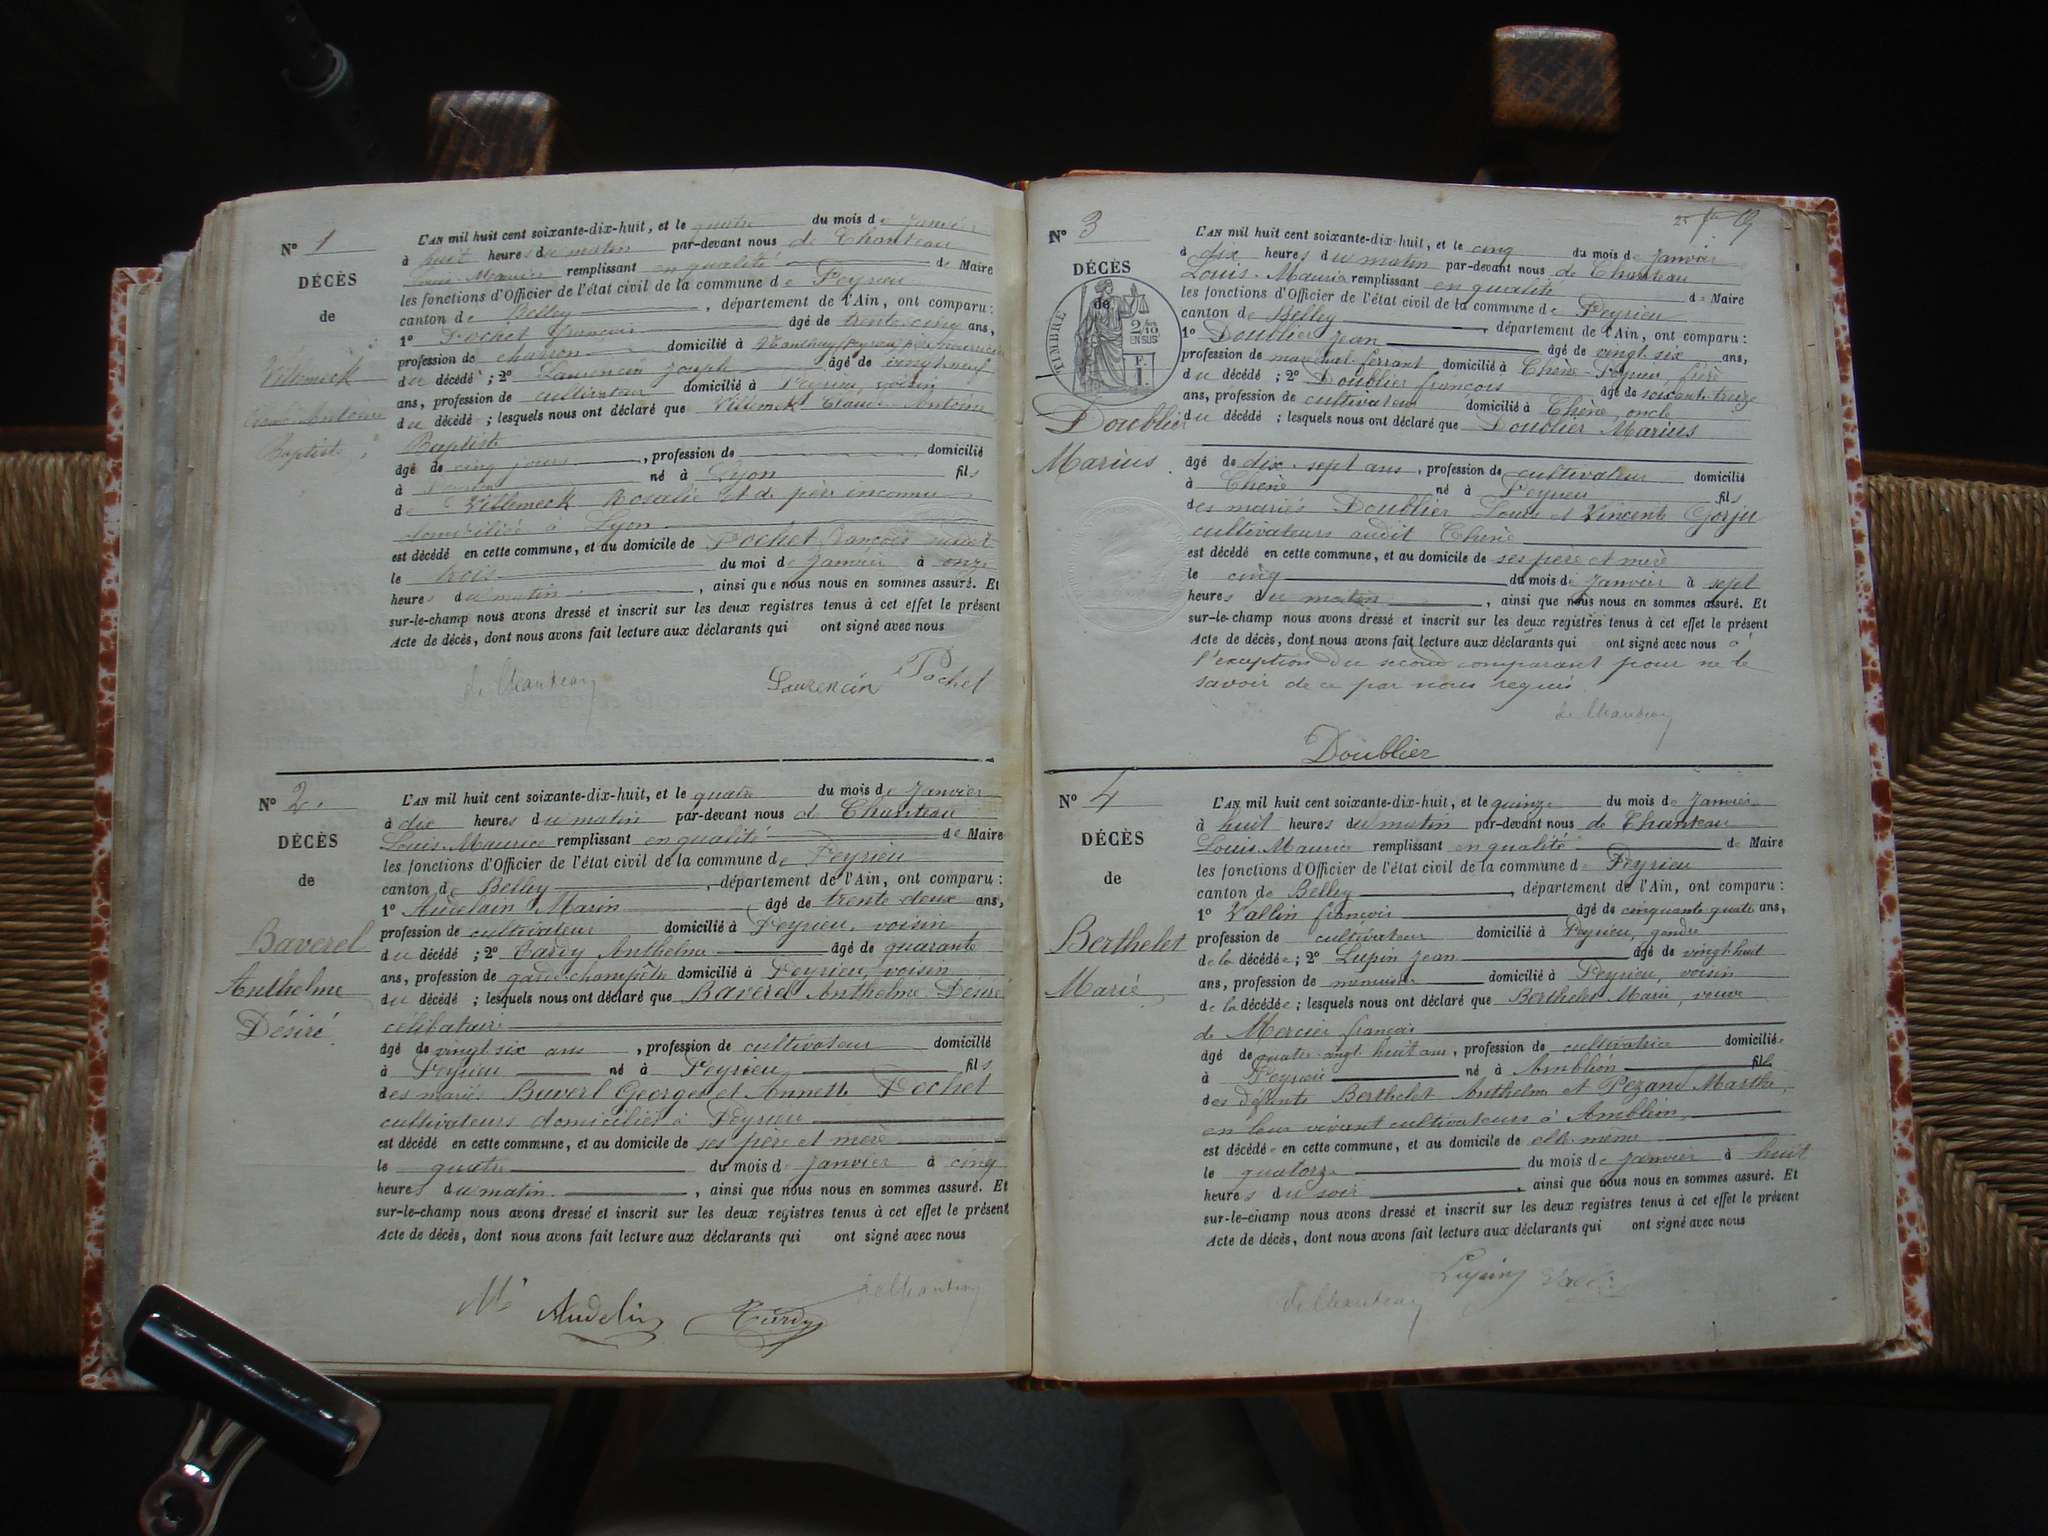 N° 1
DÉCÈS
de
Villemeck
Claude Antoine
Baptiste
L'AN mil huit cent soixante-dix-huit, et le quatre du mois de Janvier
à huit heures du matin par-devant nous de Chanteau
Louis Maurice remplissant en qualité de Maire
les fonctions d'Officier de l'état civil de la commune de Peyrieu
canton de Belley, département de l'Ain, ont comparu :
1° Pochet François âgé de trente cinq ans,
profession de charron domicilié à Peyrieu
du décédé ; 2° Laurencin Joseph âgé de vingt neuf
ans, profession de cultivateur domicilié à Peyrieu, voisin
du décédé ; lesquels nous ont déclaré que Villemeck Claude Antoine
Baptiste
âgé de cinq jours, profession de domicilié
à né à Lyon fils
de Villemeck Rosalie et de père inconnu
domiciliée à Lyon
est décédé en cette commune, et au domicile de Pochet François
le trois du moi de Janvier à onze
heures du matin, ainsi que nous nous en sommes assuré. Et
sur-le-champ nous avons dressé et inscrit sur les deux registres tenus à cet effet le présent
Acte de décès, dont nous avons fait lecture aux déclarants qui ont signé avec nous
de Chanteau Laurencin Pochet
N° 2
DÉCÈS
de
Baverel
Anthelme
Désiré
L'AN mil huit cent soixante-dix-huit, et le quatre du mois de Janvier
à dix heures du matin par-devant nous de Chanteau
Louis Maurice remplissant en qualité de Maire
les fonctions d'Officier de l'état civil de la commune de Peyrieu
canton de Belley, département de l'Ain, ont comparu :
1° Audelain Marin âgé de trente deux ans,
profession de cultivateur domicilié à Peyrieu, voisin
du décédé ; 2° Anthelme âgé de quarante
ans, profession de garde champêtre domicilié à Peyrieu, voisin
du décédé ; lesquels nous ont déclaré que Baverel Anthelme Désiré
célibataire
âgé de vingt six ans, profession de cultivateur domicilié
à Peyrieu né à Peyrieu fils
des mariés Baverl Georges et Annette Pochet
cultivateurs domiciliés à Peyrieu
est décédé en cette commune, et au domicile de ses père et mère
le quatre du mois de Janvier à cinq
heures du matin, ainsi que nous nous en sommes assuré. Et
sur-le-champ nous avons dressé et inscrit sur les deux registres tenus à cet effet le présent
Acte de décès, dont nous avons fait lecture aux déclarants qui ont signé avec nous
Mn Audelin de Chanteau
N° 3
DÉCÈS
de
TIMBRE
2/10
EN SUS
Doublier
Marius
L'AN mil huit cent soixante-dix-huit, et le cinq du mois de Janvier
à dix heures du matin par-devant nous de Chanteau
Louis-Maurice remplissant en qualité de Maire
les fonctions d'Officier de l'état civil de la commune de Peyrieu
canton de Belley, département de l'Ain, ont comparu :
1° Doublier Jean âgé de vingt-six ans,
profession de maréchal-ferrant domicilié à Chêne-Peyrieu, frère
du décédé ; 2° Doublier François âgé de soixante-treize
ans, profession de cultivateur domicilié à Chêne, oncle
du décédé ; lesquels nous ont déclaré que Doublier Marius
âgé de dix-sept ans, profession de cultivateur domicilié
à Chêne né à Peyrieu fils
des mariés Doublier Louis et Vincente Gorju
cultivateurs audit Chêne
est décédé en cette commune, et au domicile de ses père et mère
le cinq du mois de Janvier à sept
heures du matin, ainsi que nous nous en sommes assuré. Et
sur-le-champ nous avons dressé et inscrit sur les deux registres tenus à cet effet le présent
Acte de décès, dont nous avons fait lecture aux déclarants qui ont signé avec nous à
l'exception du second comparant pour ne le
savoir de ce par nous requis
de Chanteau
Doublier
N° 4
DÉCÈS
de
Berthelet
Marie
L'AN mil huit cent soixante-dix-huit, et le quinze du mois de Janvier
à huit heures du matin par-devant nous de Chanteau
Louis Maurice remplissant en qualité de Maire
les fonctions d'Officier de l'état civil de la commune de Peyrieu
canton de Belley, département de l'Ain, ont comparu :
1° Vallin François âgé de cinquante quatre ans,
profession de cultivateur domicilié à Peyrieu, gendre
de la décédée ; 2° Lupin Jean âgé de vingt-huit
ans, profession de menuisier domicilié à Peyrieu, voisin
de la décédée ; lesquels nous ont déclaré que Berthelet Marie, veuve
de Mercier François
âgé de quatre-vingt huit ans, profession de cultivatrice domiciliée
à Peyrieu né à Ambléon fille
des défunts Berthelet Anthelme et Pezant Marthe,
en leur vivant cultivateurs à Ambléon
est décédée en cette commune, et au domicile de elle-même
le quatorze du mois de Janvier à huit
heures du soir, ainsi que nous nous en sommes assuré. Et
sur-le-champ nous avons dressé et inscrit sur les deux registres tenus à cet effet le présent
Acte de décès, dont nous avons fait lecture aux déclarants qui ont signé avec nous
de Chanteau Lupin